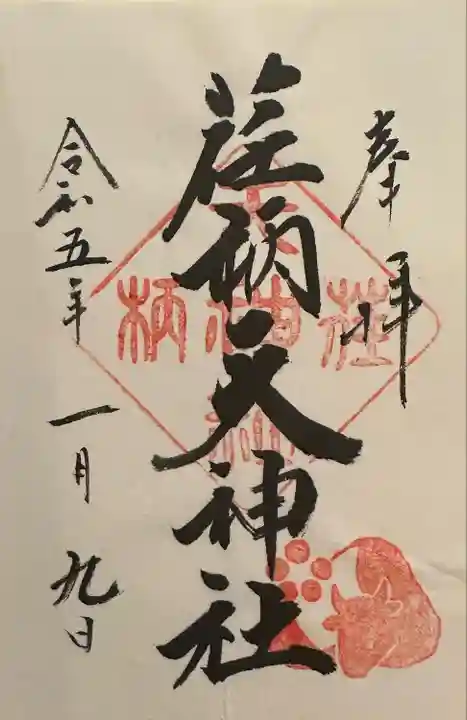 奉拝
荏柄天神社
令和五年一月九日
荏
柄